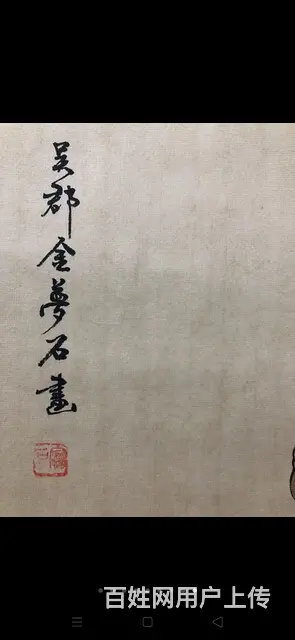 吴郡金夢石畫
百姓网用户上传